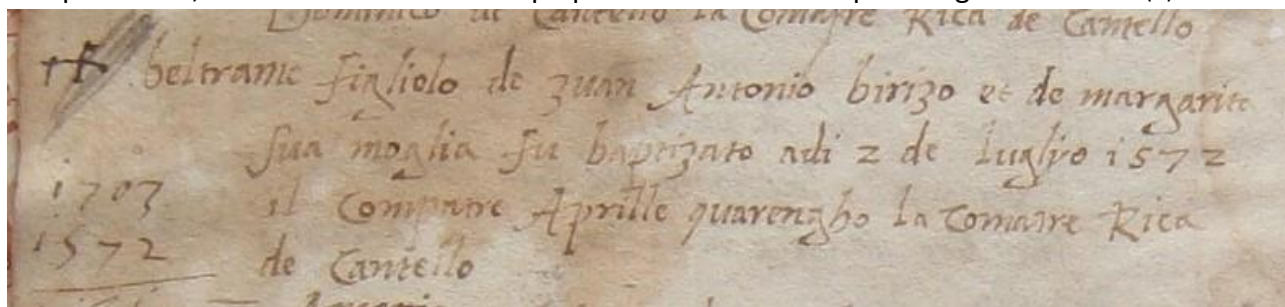 Dominico de Cantello la Comatre Rica de Cantello
beltrame figliolo de zuan Antonio birizo et de margarite
sua moglia fu baptizato adi 2 de luglio 1572
1703 il Compatre Aprille quarengho la Comatre Rica
1572 de Cantello